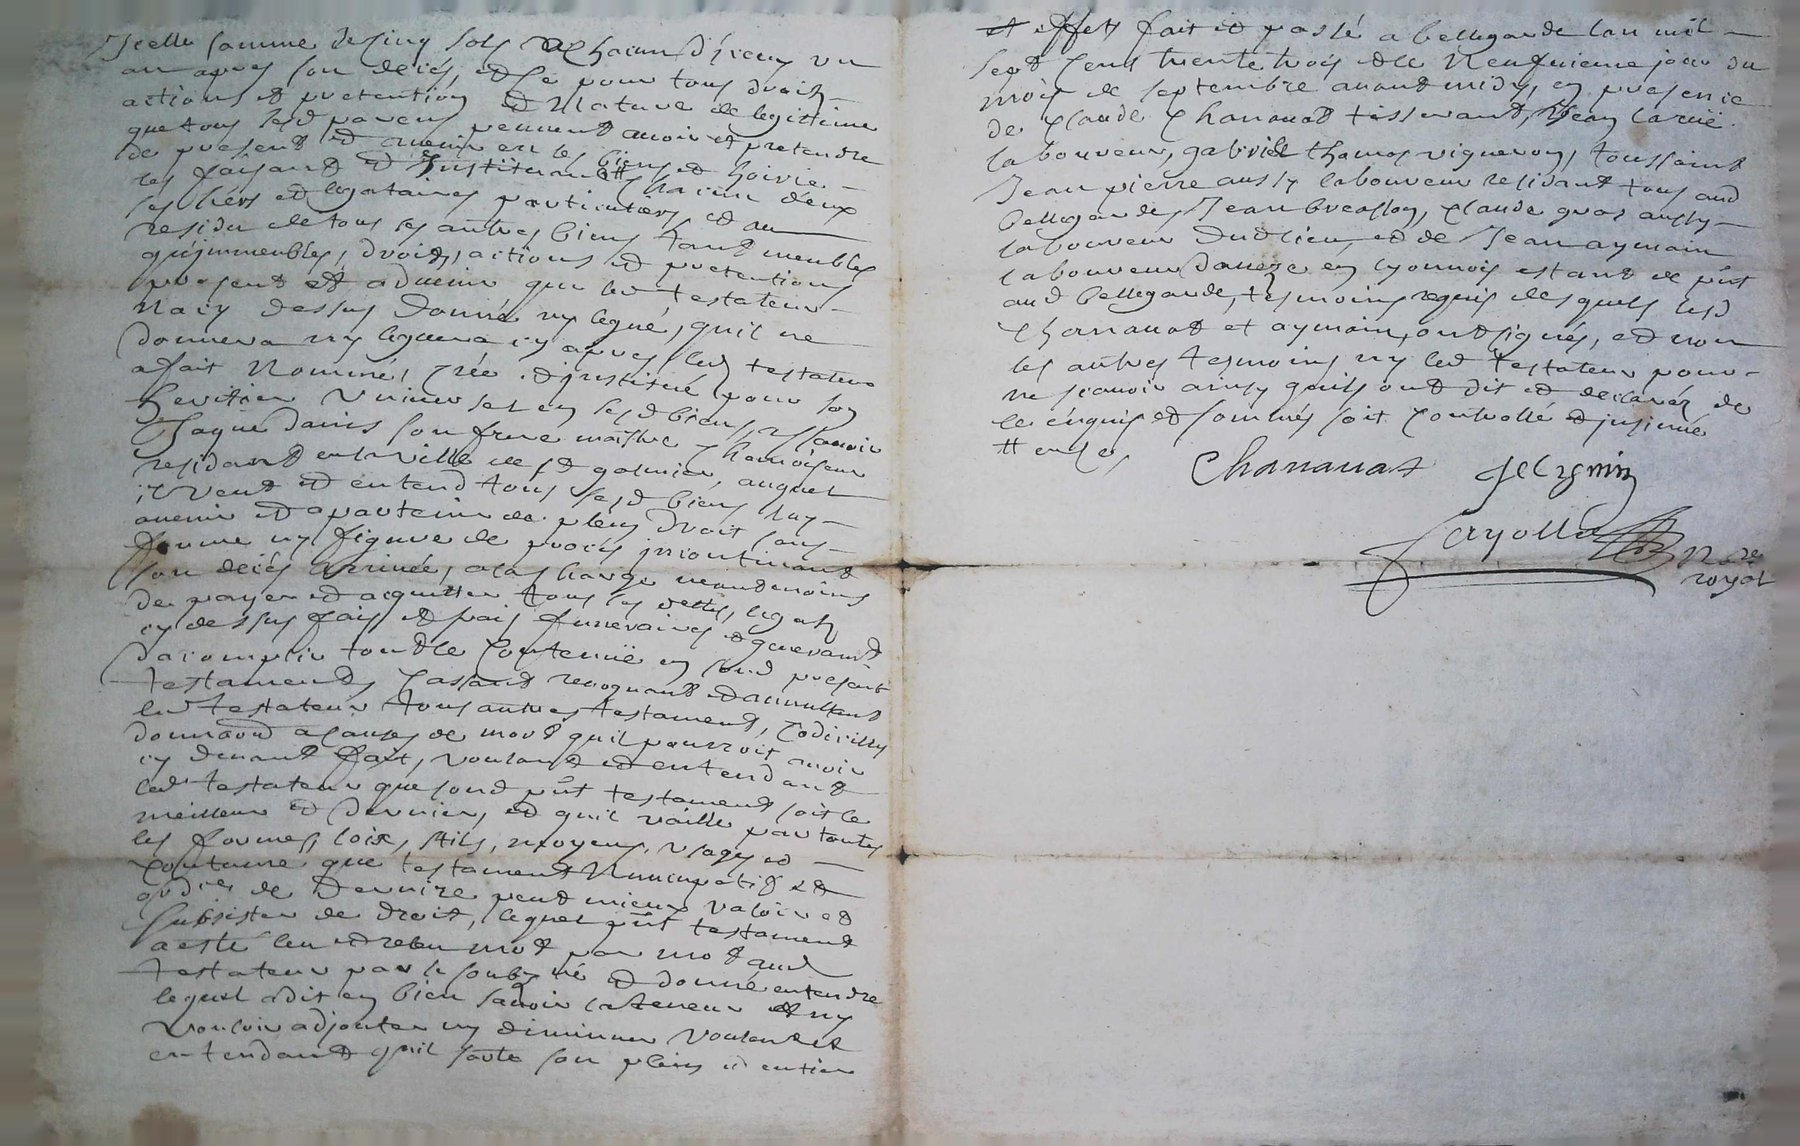 Icelle somme de cinq sols a chacun d'iceux un
an apres son decés, et ce pour tous droits
actions et pretentions et nature de legitime
que tous sesd parens peuvent avoir et pretendre
de present et avenir en ses biens et hoirie
les faisant et instituant chacun d'eux
ses hers et legataires particuliers et au
residu de tous ses autres biens tant meubles
qu'immeubles, droits, actions et pretentions
present et advenir que led testateur
na cy dessus donné ny legué, qu'il ne
donnera ny leguera cy apres led testateur
a fait nommé, créé et institué pour son
heritier universel en sesd biens, a scavoir
Jaque Danis son frere maistre chamoiseur
residant en la ville de st galmier, auquel
il veut et entend tous sesd biens luy
avenir et apartenir de plein droit sans
forme ny figure de procés incontinant
son decés arrivée, a la charge neandmoins
de payer et aquitter tous ses debtes, legats
cy dessus fais et frais funeraires et generaux
dacomplir tout le contenue en sond present
testament, cassant revoquant et annullant
led testateur tous autres testament, codicilles
donnaond a causes de mort quil pourroit avoir
cy devant fait, voulant et entendant
led testateur que sond pnt testament soit le
meilleur et dernier, et quil vaille par toutes
les formes, loix, stils, moyens, usages et
coutume que testament nuncupatif et
ordre de derniere peut mieux valoir et
subsister de droit, lequel pnt testament
a esté leu et releu mot par mot aud
testateur par le soubsné et donné entendre
lequel a dit en bien savoir la teneur et ny
vouloir adjouter ny diminuer voulant et
entendant quil sorte son plein et entier
et effett fait et passé a bellegarde lan mil
sept cent trente trois et le neufvieme jour du
mois de septembre avant midy, en presence
de Claude Chanauat tisserant, Jean larüe
laboureur, gabriel thomas vigneron, toussaint
Jean pierre aussy laboureur residant tous aud
bellegarde, Jean breasson, Claude gras aussy
laboureur dud lieu, et de Jean aymain
laboureur en lyonnois estant de pnt
aud bellegarde, tesmoins requis desquels lesd
Chanauat et aymain, ont signés, et non
les autres tesmoins ny led testateur pour
ne scavoir ainsy quils ont dit et declarez de
ce enquis et sommés soit controllé et insinué
Chanauat
Fayolle
Nore
royal